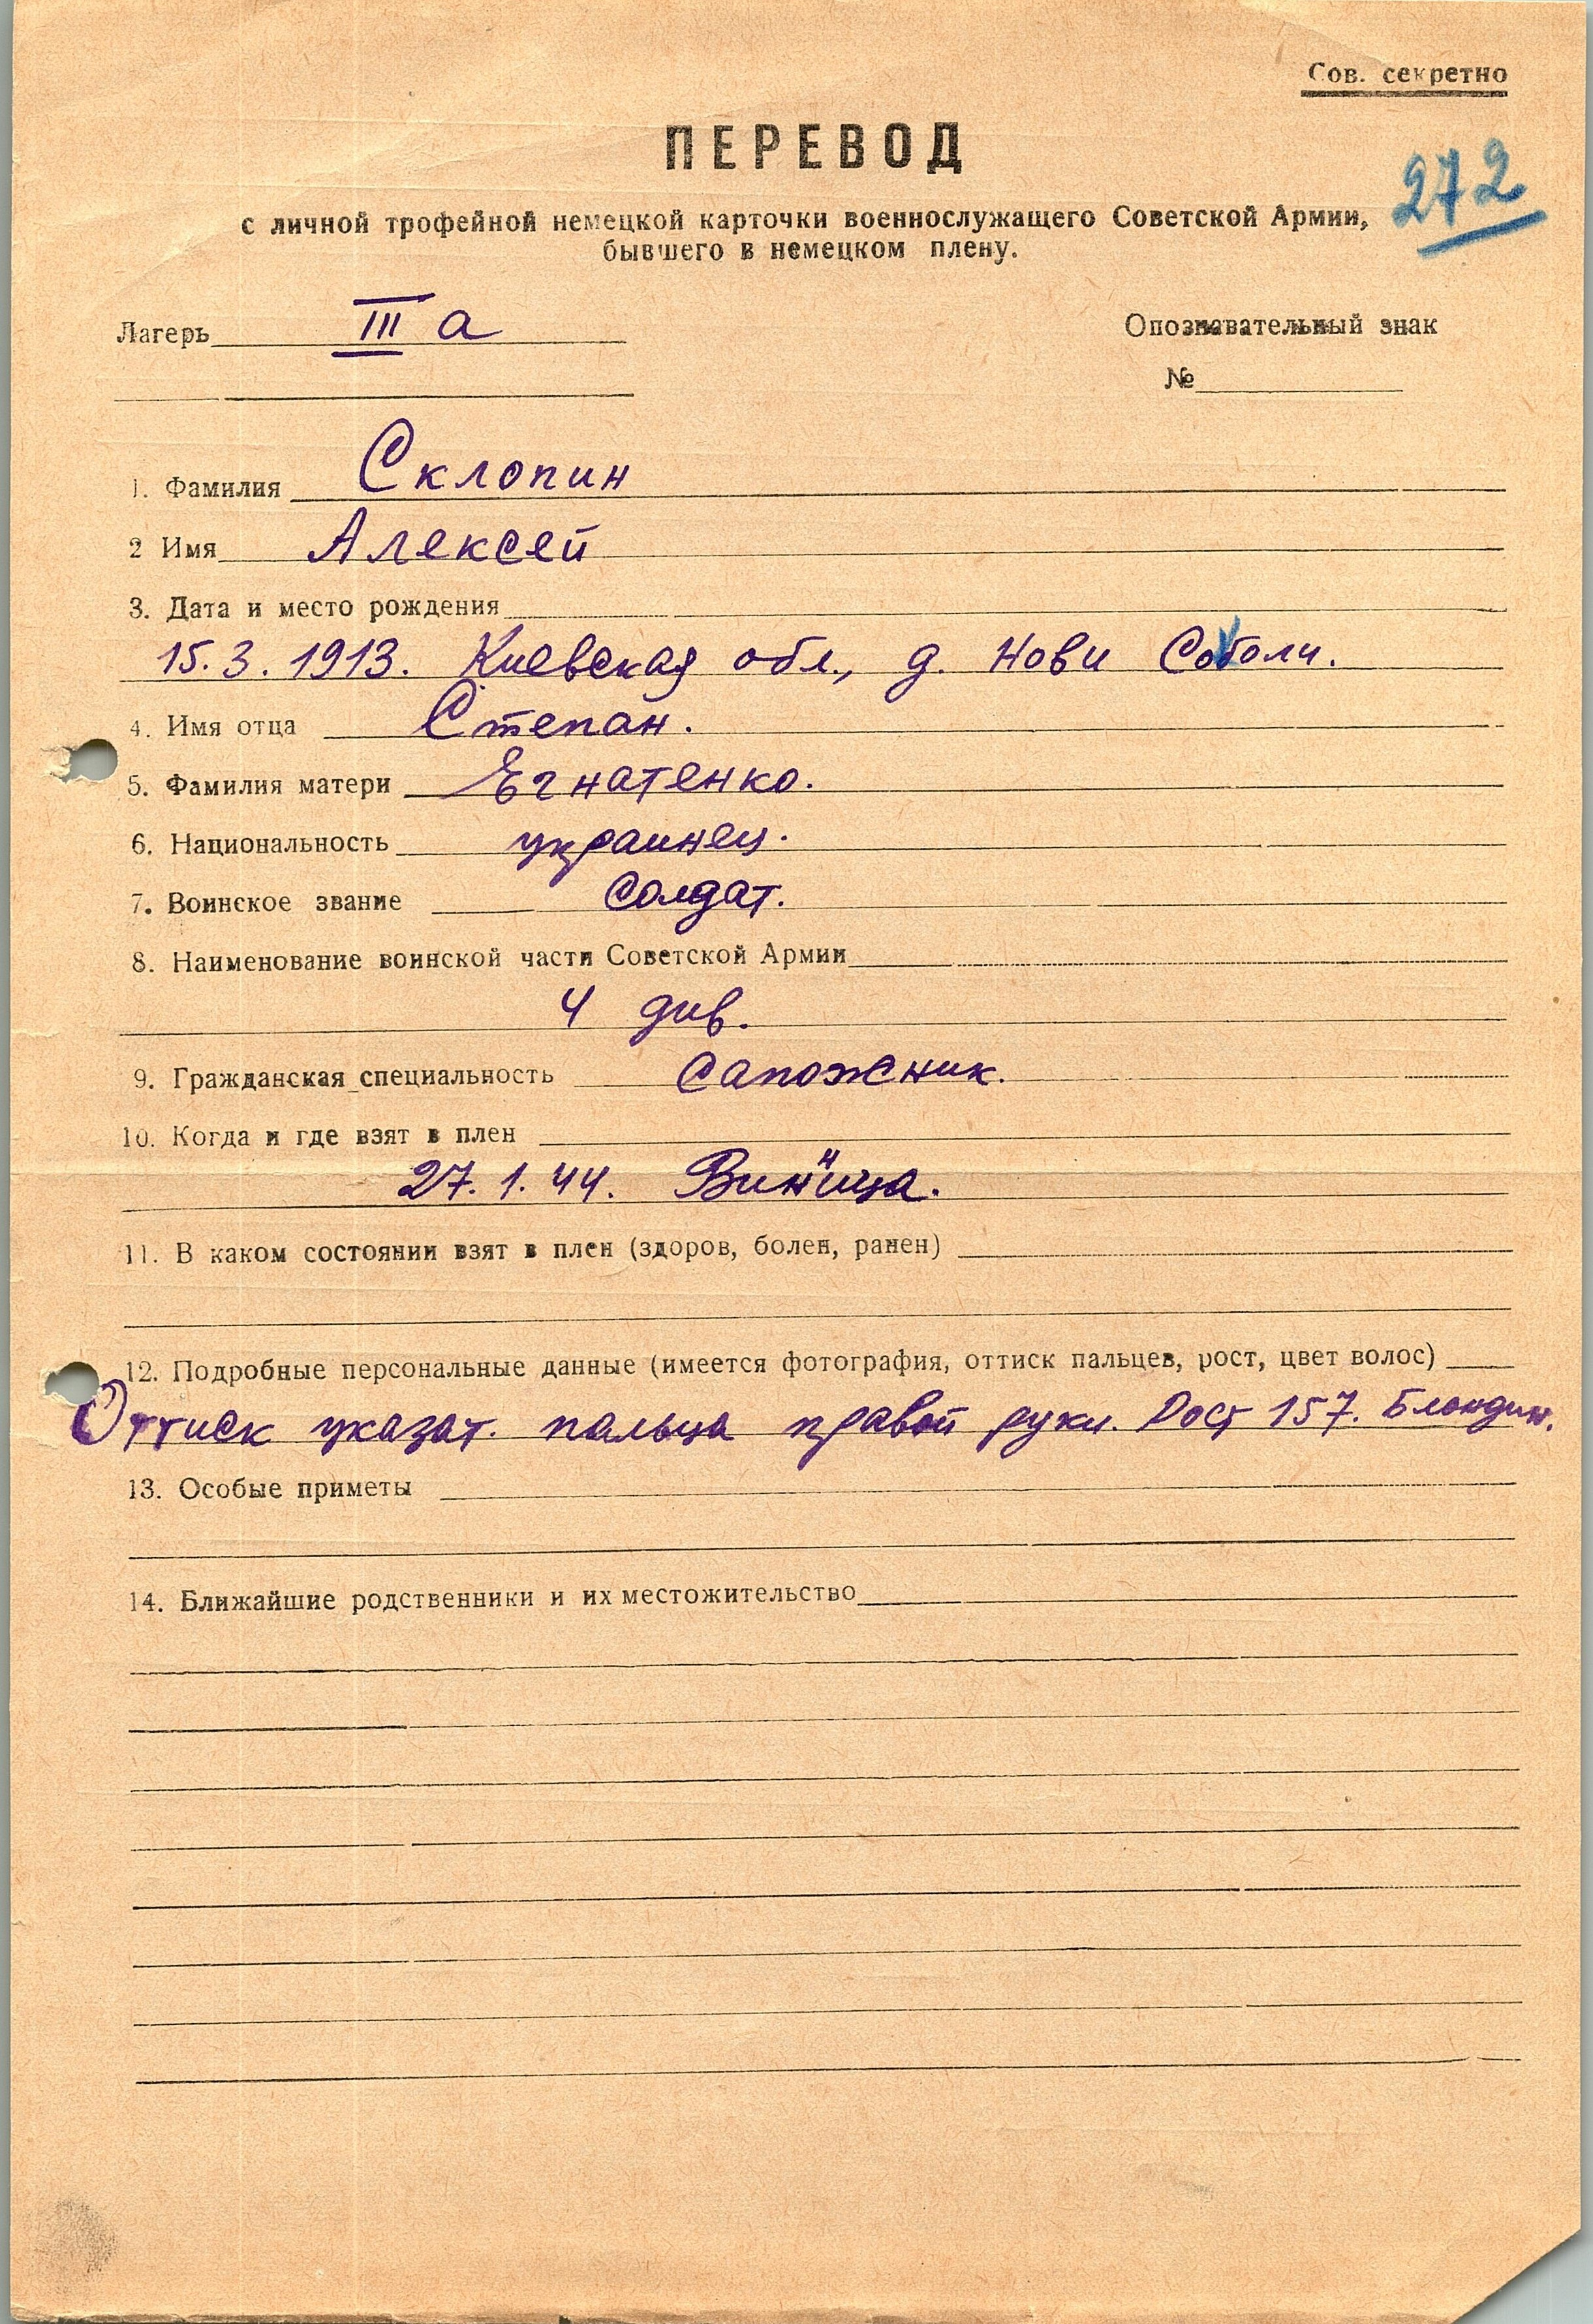 Сов. секретно
ПЕРЕВОД
272
с личной трофейной немецкой карточки военнослужащего Советской Армии,
бывшего в немецком плену.
Лагерь III а
Опознавательный знак
№
1. Фамилия Склопин
2 Имя Алексей
3. Дата и место рождения
15.3.1913. Киевская обл., д. Нови Соболи.
4. Имя отца Степан.
5. Фамилия матери Егнатенко.
6. Национальность украинец.
7. Воинское звание солдат.
8. Наименование воинской части Советской Армии
4 див.
9. Гражданская специальность сапожник.
10. Когда и где взят в плен
27.1.44. Винница.
11. В каком состоянии взят в плен (здоров, болен, ранен)
12. Подробные персональные данные (имеется фотография, оттиск пальцев, рост, цвет волос)
Оттиск указат. пальца правой руки. Рост 157. Блондин.
13. Особые приметы
14. Ближайшие родственники и их местожительство